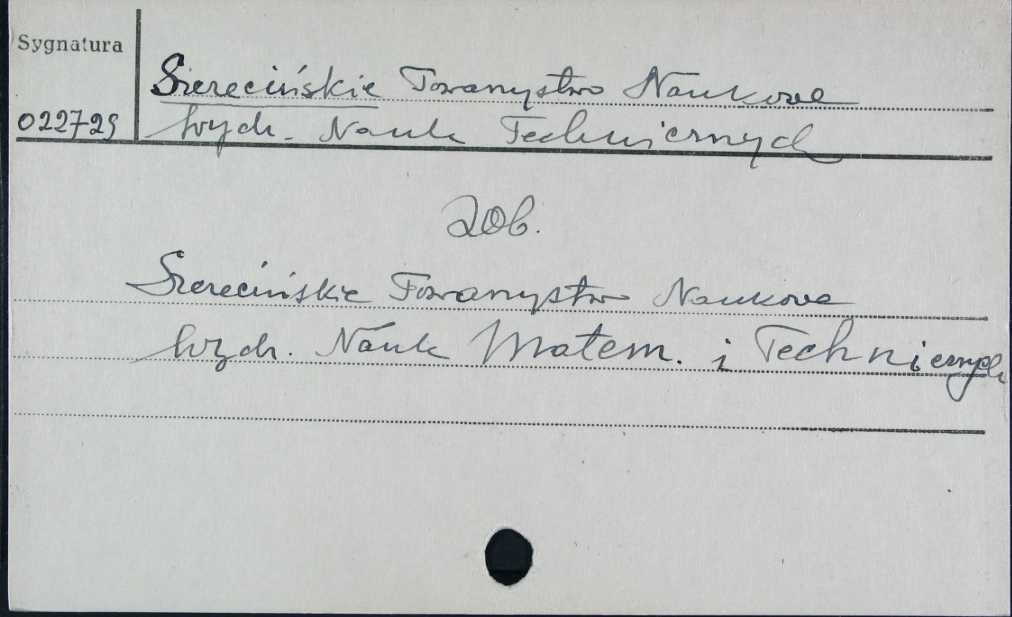 Sygnatura
Szczecińskie Towarzystwo Naukowe
022725 Wydz. Nauk Technicznych
Zob.
Szczecińskie Towarzystwo Naukowe
Wydz. Nauk Matem. i Technicznych